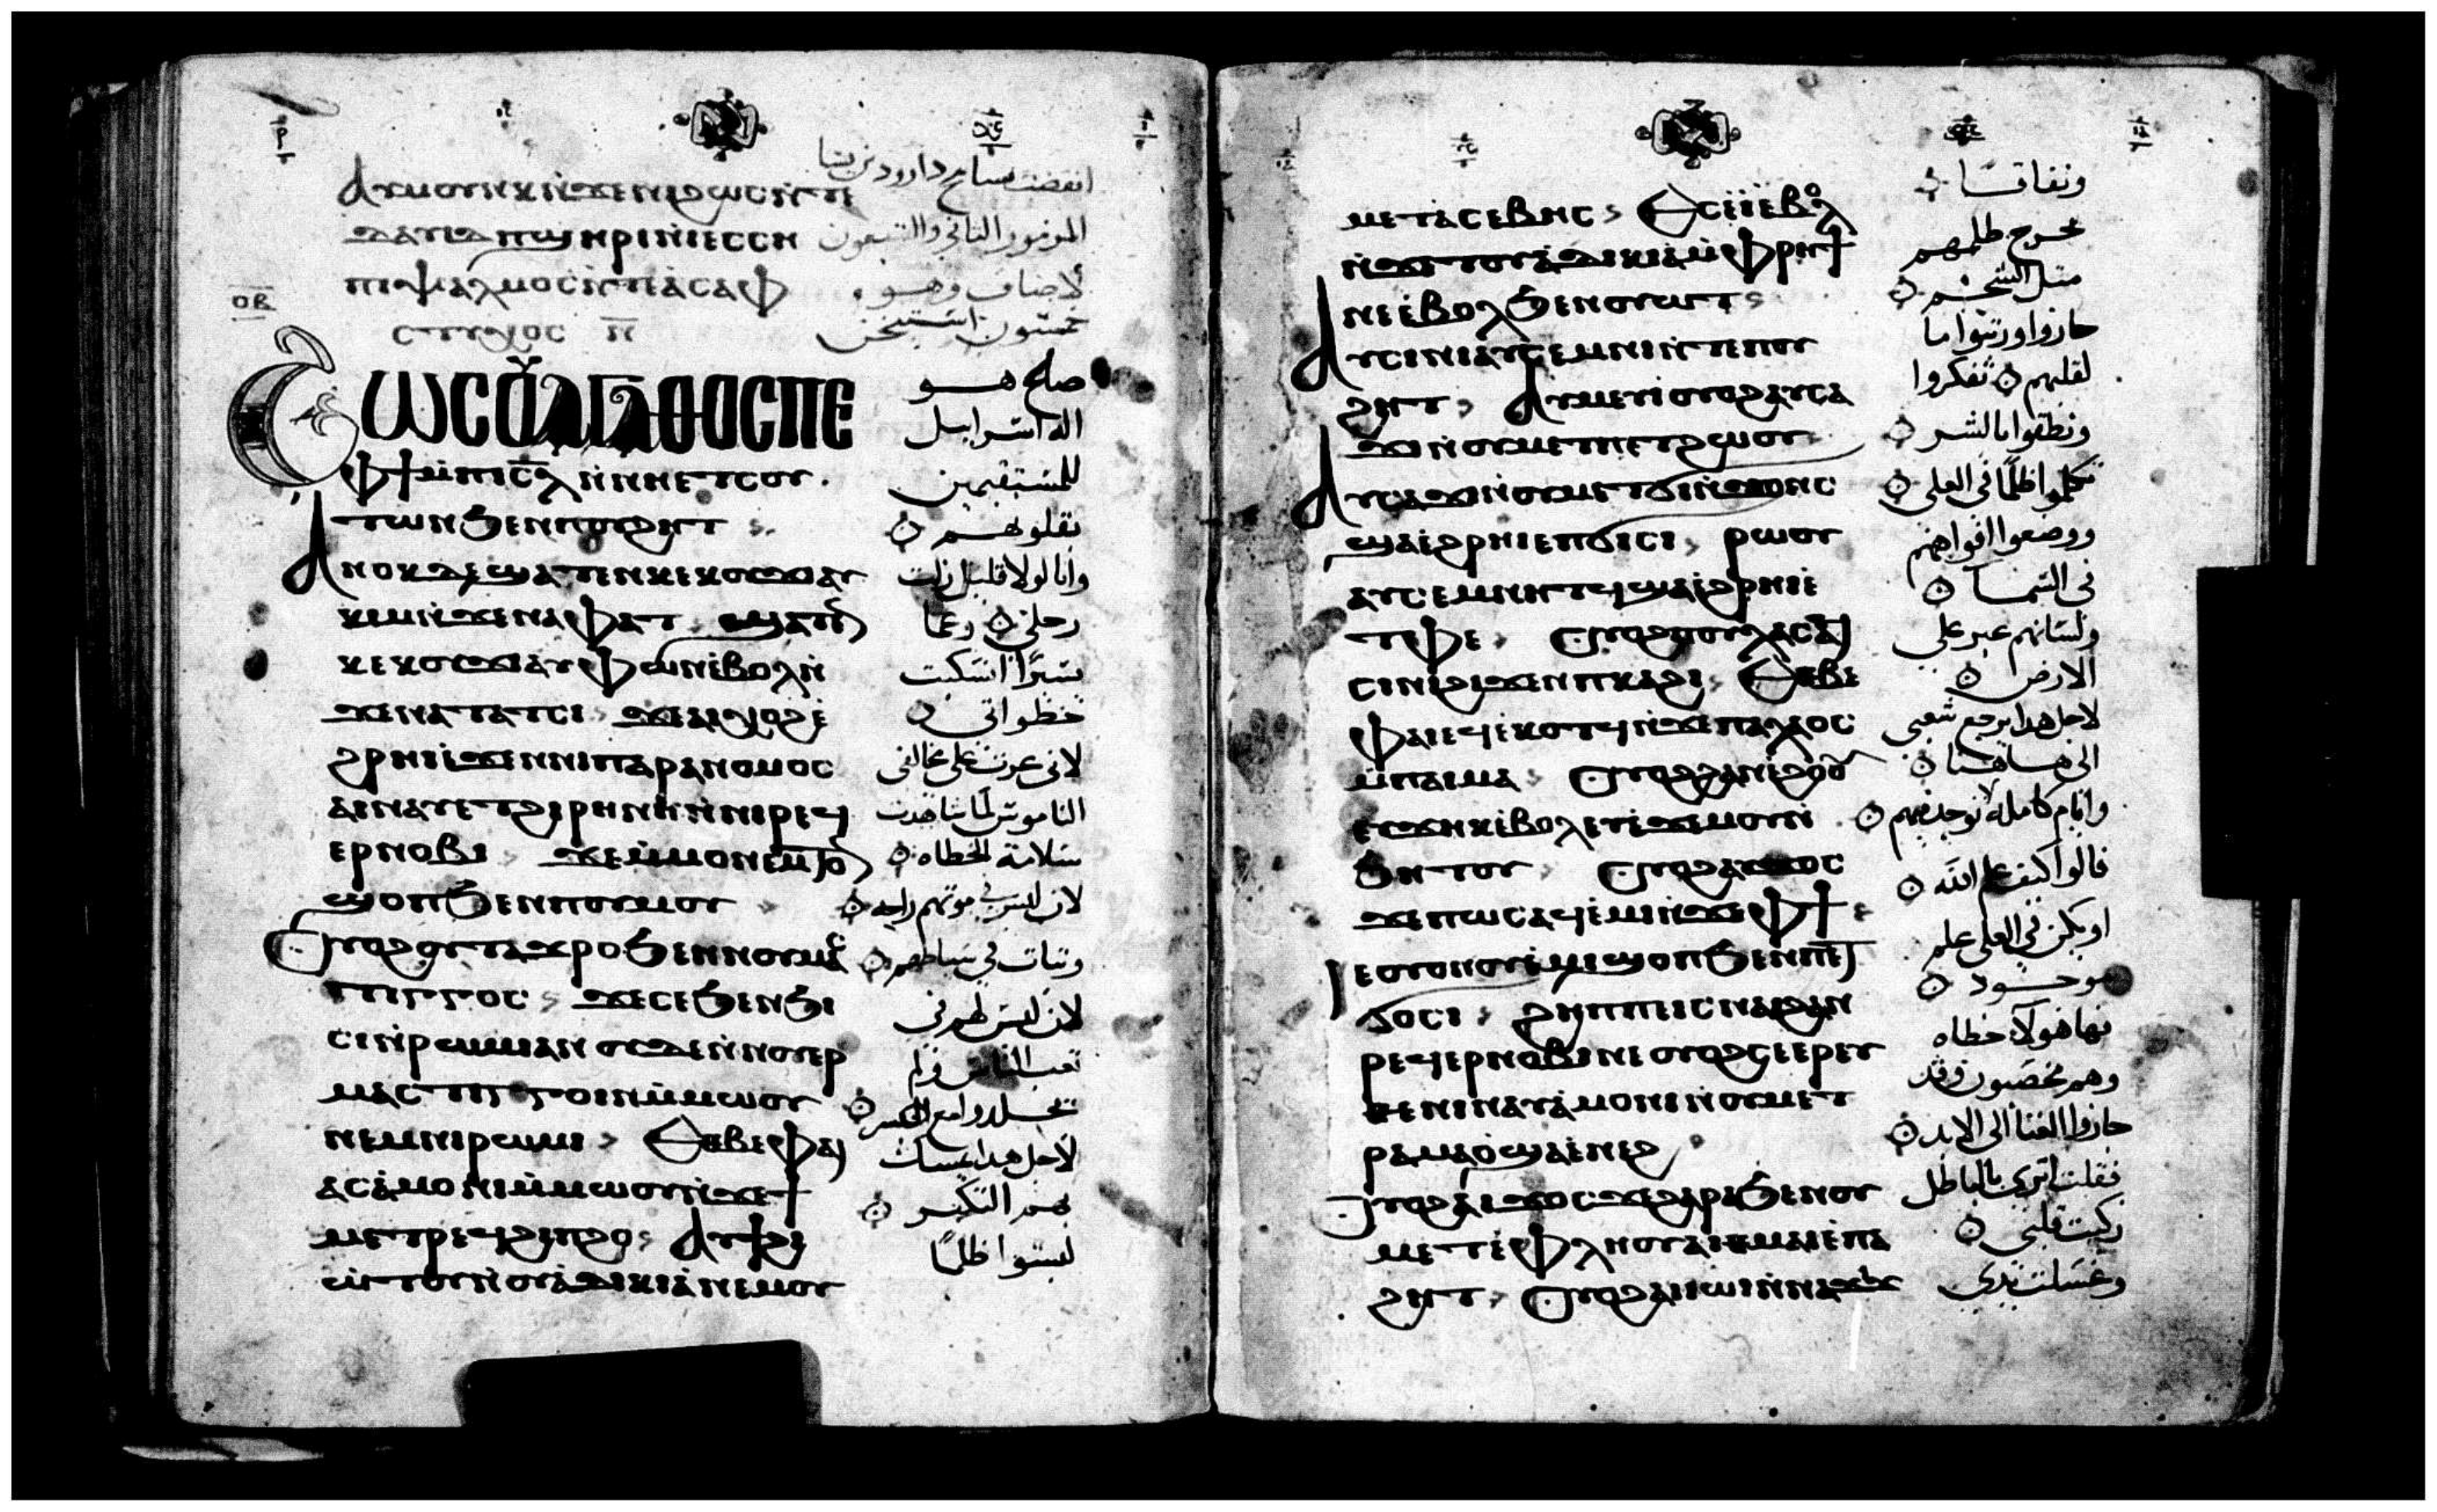 Ⲁⲩⲙⲟⲩⲛⲕ ⲛ̀ϫⲉⲛⲓϩⲱⲥ ⲛ̀ⲧⲉ
ⲇⲁⲩⲓⲇ ⲡϣⲏⲣⲓ ⲛ̀ⲓⲉⲥⲥⲉ
ⲡⲓⲯⲁⲗⲙⲟⲥ ⲛ̀ⲧⲉ ⲁⲥⲁⲫ
ⲟⲃ
ⲥⲧⲩⲭⲟⲥ ⲛ̅
Ⲉⲱⲥ ⲟ̀ⲁⲅⲁⲑⲟⲥ ⲡⲉ
ⲫϯ ⲙ̀ⲡⲓⲥ̅ⲗ̅ ⲛ̀ⲛⲏⲉⲧⲥⲟⲩ
ⲧⲱⲛ ϧⲉⲛ ⲡⲟⲩϩⲏⲧ
Ⲁⲛⲟⲕ ⲇⲉ ϣⲁⲧⲉⲛ ⲕⲉⲕⲟⲩϫⲓ ⲁⲩ
ⲕⲓⲙ ⲛ̀ϫⲉ ⲛⲁⲫⲁⲧ ϣⲁⲧⲉⲛ
ⲕⲉⲕⲟⲩϫⲓ ⲁⲩⲫⲱⲛ ⲉ̀ⲃⲟⲗ ⲛ̀
ϫⲉ ⲛⲁⲧⲁⲧⲥⲓ ϫⲉ ⲁⲓⲭⲟϩ ⲉ̀
ϩⲣⲏⲓ ⲉ̀ϫⲉⲛ ⲛⲓⲡⲁⲣⲁⲛⲟⲙⲟⲥ
ⲁⲓⲛⲁⲩ ⲉⲧϩⲓⲣⲏⲛⲏ ⲛ̀ⲛⲓⲣⲉϥ
ⲉⲣⲛⲟⲃⲓ ϫⲉ ⲙ̀ⲙⲟⲛ ⲉⲙⲧⲟⲛ
ϣⲟⲡ ϧⲉⲛ ⲡⲟⲩⲙⲟⲩ
Ⲟⲩⲟϩ ⲟⲩⲧⲁϫⲣⲟ ϧⲉⲛ ⲛⲟⲩⲙⲁ
ⲥⲧⲓⲅⲅⲟⲥ ϫⲉ ⲥⲉϧⲉⲛ ϧⲓ
ⲥⲓ ⲛ̀ⲣⲱⲙⲓ ⲁⲛ ⲟⲩⲇⲉ ⲛ̀ⲛⲟⲩⲉⲣ
ⲙⲁⲥⲧⲓⲅⲅⲟⲓⲛ ⲙ̀ⲙⲱⲟⲩ
ⲛⲉⲙ ⲛⲓⲣⲱⲙⲓ Ⲉⲑⲃⲉ ⲫⲁⲓ
ⲁⲥⲁ̀ⲙⲟⲛⲓ ⲙ̀ⲙⲱⲟⲩ ⲛ̀ϫⲉ ϯ
ⲙⲉⲧⲣⲉϥϩⲓⲡϩⲟ Ⲁⲩϯϩⲓ
ⲱⲧⲟⲩ ⲛ̀ⲟⲩⲁ̀ⲇⲓⲕⲓⲁ̀ ⲛⲉⲙ ⲟⲩ
المزمور الثاني والسبعون
لاصاف وهو
خمسون استيخن
صالح هو
اله اسراييل
للمستقيمين
بقلوبهم
وانا لولا قليل زلت
رجلي وعما
يسيرا انسكبت
خطواتي
لاني غرت على مخالفي
الناموس لما شاهدت
سلامة الخطاه
لان ليس في موتهم راحه
وثبات في سياطهم
لان ليس لهم في
تعب الناس ولم
يجلدوا مع البشر
لاجل هدا يمسك
بهم التكبر
لبسوا ظلما
ⲙⲉⲧⲁⲥⲉⲃⲏⲥ Ⲉⲥⲉ̀ⲓ̀ ⲉ̀ⲃⲟⲗ
ⲛ̀ϫⲉ ⲧⲟⲩⲁ̀ⲇⲓⲕⲓⲁ ⲙ̀ⲫⲣⲏϯ
ⲛⲉ ⲉ̀ⲃⲟⲗ ϧⲉⲛ ⲟⲩⲱⲧ
Ⲁⲩⲥⲓⲛⲓ ⲁⲩⲥⲉⲙⲛⲓⲛ ⲧⲉ ⲡⲟⲩ
ϩⲏⲧ Ⲁⲩⲙⲉⲩⲓ ⲟⲩⲟϩ ⲁⲩⲥⲁ
ϫⲓ ⲛ̀ⲟⲩⲙⲉⲧⲡⲉⲧϩⲱⲟⲩ
Ⲁⲩⲥⲁϫⲓ ⲛ̀ⲟⲩⲙⲉⲧϭⲓⲛϫⲟⲛⲥ
ϣⲁ ⲉ̀ϩⲣⲏⲓ ⲉⲡϭⲓⲥⲓ ⲣⲱⲟⲩ
ⲁⲩⲥⲉⲙⲛⲏⲧϥ ϣⲁ ⲉ̀ϩⲣⲏⲓ ⲉ̀
ⲧⲫⲉ Ⲟⲩⲟϩ ⲡⲟⲩⲗⲁⲥ ⲁϥ
ⲥⲓⲛⲓ ϩⲓϫⲉⲛ ⲡⲕⲁϩⲓ Ⲉⲑⲃⲉ
ⲫⲁⲓ ⲉϥⲉ̀ⲕⲟⲧϥ ⲛ̀ϫⲉ ⲡⲁⲗⲁⲟⲥ
ⲙ̀ⲡⲁⲓⲙⲁ Ⲟⲩⲟϩ ϩⲁⲛⲉ̀ϩⲟⲟⲩ
ⲉⲩϫⲏⲕ ⲉ̀ⲃⲟⲗ ⲉⲩⲉ̀ϫⲉⲙⲟⲩ ⲛ̀
ϧⲏⲧⲟⲩ Ⲟⲩⲟϩ ⲁⲩϫⲟⲥ
ϫⲉ ⲡⲱⲥ ⲁϥⲉ̀ⲙⲓ ⲛ̀ϫⲉ ⲫϯ
Ⲓⲉ ⲟⲩⲟⲛ ⲟⲩⲉ̀ⲙⲓ ϣⲟⲡ ϧⲉⲛ ⲡⲉⲧ
ϭⲟⲥⲓ ϩⲏⲡⲡⲉ ⲓⲥ ⲛⲁⲓ ϩⲁⲛ
ⲣⲉϥⲉⲣⲛⲟⲃⲓ ⲛⲉ ⲟⲩⲟϩ ⲥⲉⲉⲣⲉⲩ
ⲑⲉⲛⲓⲛ ⲁⲩⲁ̀ⲙⲟⲛⲓ ⲛ̀ⲟⲩⲙⲉⲧ
ⲣⲁⲙⲁⲟ̀ ϣⲁ ⲉ̀ⲛⲉϩ
Ⲟⲩⲟϩ ⲁⲓϫⲟⲥ ϫⲉ ϩⲁⲣⲁ ϧⲉⲛ ⲟⲩ
ⲙⲉⲧⲉ̀ⲫⲗⲏⲟⲩ ⲁⲓⲑⲙⲁⲓⲉ̀ ⲡⲁ
ϩⲏⲧ Ⲟⲩⲟϩ ⲁⲓⲓⲱⲓ ⲛ̀ⲛⲁϫⲓϫ
ونفاقا
يخرج ظلمهم
مثل الشحم
جازوا ورتبوا ما
لقلبهم تفكروا
ونطقوا بالشر
تكلموا ظلما في العلي
ووضعوا افواههم
في السما
ولسانهم عبر على
الارض
لاجل هدا يرجع شعبي
الى هاهنا
وايام كامله توجد فيهم
قالوا كيف علم الله
او يكن في العلي علم
موجود
فها هولا خطاه
وهم مخصبون وقد
حازوا الغنا الى الابد
فقلت اترى بالباطل
زكيت قلبي
وغسلت يدي